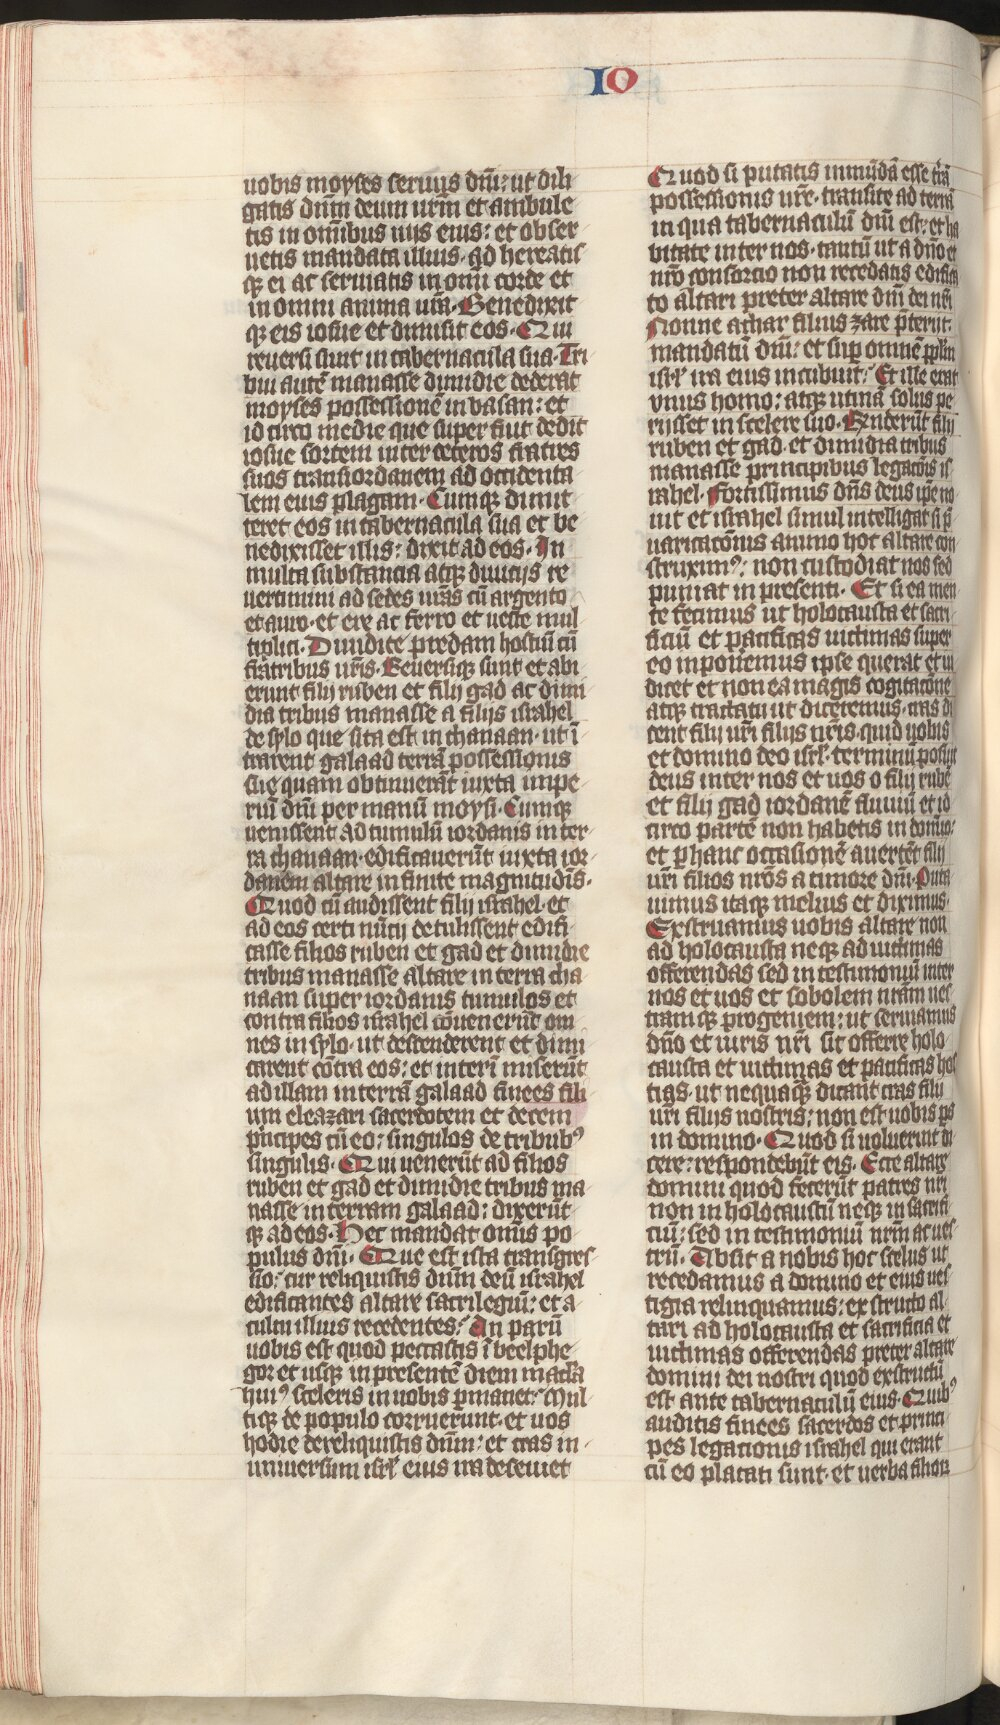 IO
uobis moyses seruus dm̄: ut dili
gatis dn̄m deum urm̄ et ambule
tis in om̄ibus uijs eius: et obser
uetis mandata illius. ad hereatis
qꝫ ei ac seruiatis in om̄i corde et
in omni anima ur̄a. Benedixit
qꝫ eis iosue et dimisit eos. Qui
reuersi sunt in tabernacula sua. Tri
bui autē manasse dimidie dederat
moyses possessionē in basan: et
idcirco medie que super fiut dedit
iosue sortem inter ceteros fratres
suos transiordanem ad occidenta
lem eius plagam. Cumqꝫ dimit
teret eos in tabernacula sua et be
nedixisset illis: dixit ad eos. In
multa substancia atqꝫ diuicijs re
uertimini ad sedes ur̄as cū argento
et auro. et ere ac ferro et ueste mul
tiplici. Diuidite predam hostiū cū
fratribus ur̄is. Reuersiqꝫ sunt et abi
erunt filij ruben et filij gad ac dimi
dia tribus manasse a filijs israhel
de sylo que sita est in chanaan. ut ī
trarent galaad terrā possessionis
sue quam obtinuerāt iuxta impe
riū dn̄i per manū moysi. Cumqꝫ
uenissent ad tumulū iordanis in ter
ra chanaan. edificauerūt iuxta ior
danem altare infinite magnitudīs.
Quod cū audissent filij israhel. et
ad eos certi nūcij detulissent edifi
casse filios ruben et gad et dimidie
tribus manasse altare in terra cha
naan super iordanis tumulos et
contra filios israhel cōuenerūt om
nes in sylo. ut descenderent et dimi
carent cōtra eos: et interī miserūt
ad illam in terrā galaad finees fili
um eleazari sacerdotem et decem
p̄ncipes cū eo: singulos de tribubꝰ
singulis. Qui uenerūt ad filios
ruben et gad et dimidie tribus ma
nasse in terram galaad: dixerūt
qꝫ ad eos. Hec mandat om̄is po
pulus dn̄i. Que est ista transgres
sio: cur reliquistis dn̄m deū israhel
edificantes altare sacrilegiū: et a
cultu illius recedentes: An parū
uobis est quod peccastis ī beelphe
gor et usqꝫ in presentē diem macl̄a
huiꝰ sceleris in uobis p̄manet: Mul
tiqꝫ de populo corruerunt. et uos
hodie dereliquistis dn̄m: et cras in
uniuersum isrl̄ eius ira deseuiet
Quod si putatis inmūdā esse tr̄ā
possessionis ur̄e. transite ad terrā
in qua tabernaculū dn̄i est: et ha
bitate inter nos. tantū ut a dn̄o et
nr̄o consorcio non recedatis edifica
to altari preter altare dn̄i dei nr̄i
Nonne achar filius zare p̄terijt
mandatū dn̄i: et sup̄ omnē pp̄lm
isrl̄ ira eius incubuit: Et ille erat
vnus homo: atqꝫ utinā solus pe
risset in scelere suo. Rn̄derūt filij
ruben et gad et dimidia tribus
manasse principibus legacōis is
rahel. Fortissimus dn̄s deus ip̄e no
uit et israhel simul intelligat si p̄
uaricacōnis animo hoc altare con
struximꝰ: non custodiat nos sed
puniat in presenti. Et si ea men
te fecimus ut holocausta et sacri
ficiū et pacificas uictimas super
eo inponemus ipse querat et iu
dicet et non ea magis cogitacōne
atqꝫ tractatu ut diceremus. cras di
cent filij ur̄i filijs nr̄is. quid uobis
et domino deo isrl̄. terminū posuit
deus inter nos et uos o filij rubē
et filij gad iordanē fluuiū et id
circo partē non habetis in domīo:
et p̄ hanc occasionē auertēt filij
ur̄i filios nrōs a timore dn̄i. Puta
uimus itaqꝫ melius et diximus.
Exstruamus uobis altare non
ad holocausta neqꝫ ad uictimas
offerendas sed in testimoniū inter
nos et uos et sobolem nrām ues
tramqꝫ progeniem: ut seruiamus
dn̄o et iuris nr̄i sit offerre holo
causta et uictimas et pacificas hos
tias. ut nequaqꝫ̄ dicant cras filij
ur̄i filijs nostris: non est uobis ps
in domino. Quod si uoluerint di
cere: respondebūt eis. Ecce altare
domini quod fecerūt patres nr̄i
non in holocaustū neqꝫ in sacrifi
ciū: sed in testimoniū nrm̄ ac ues
trū. Absit a nobis hoc scelus ut
recedamus a domino et eius ues
tigia relinquamus: exstructo al
tari ad holocausta et sacrificia et
uictimas offerendas preter altare
domini dei nostri quod exstructū
est ante tabernaculū eius. Quibꝰ
auditis finees sacerdos et princi
pes legacionis israhel qui erant
cū eo placati sunt. et uerba filioꝝ